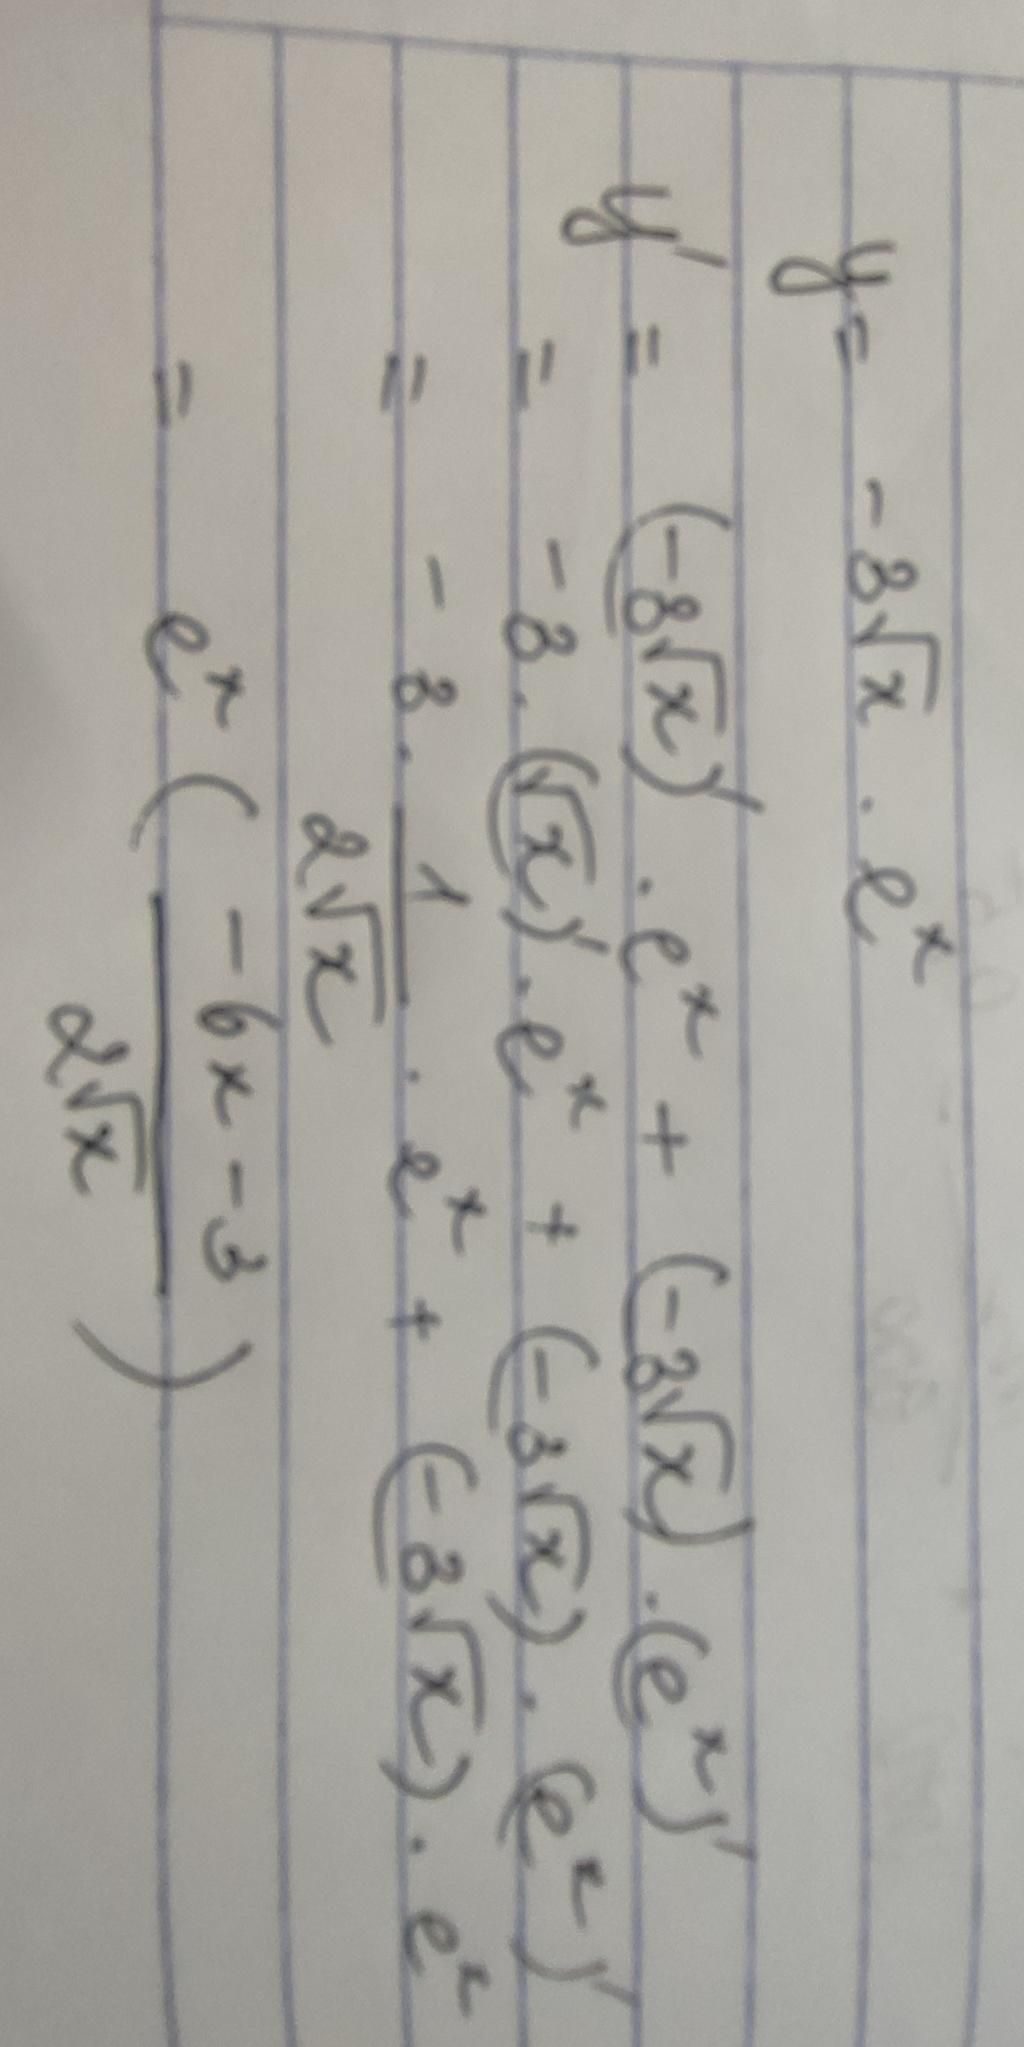 y = -3√x . eˣ
y' = (-3√x)' . eˣ + (-3√x) . (eˣ)'
= -3 . (√x)' . eˣ + (-3√x) . (eˣ)'
= -3 . 1/(2√x) . eˣ + (-3√x) . eˣ
= eˣ ( (-6x - 3)/(2√x) )